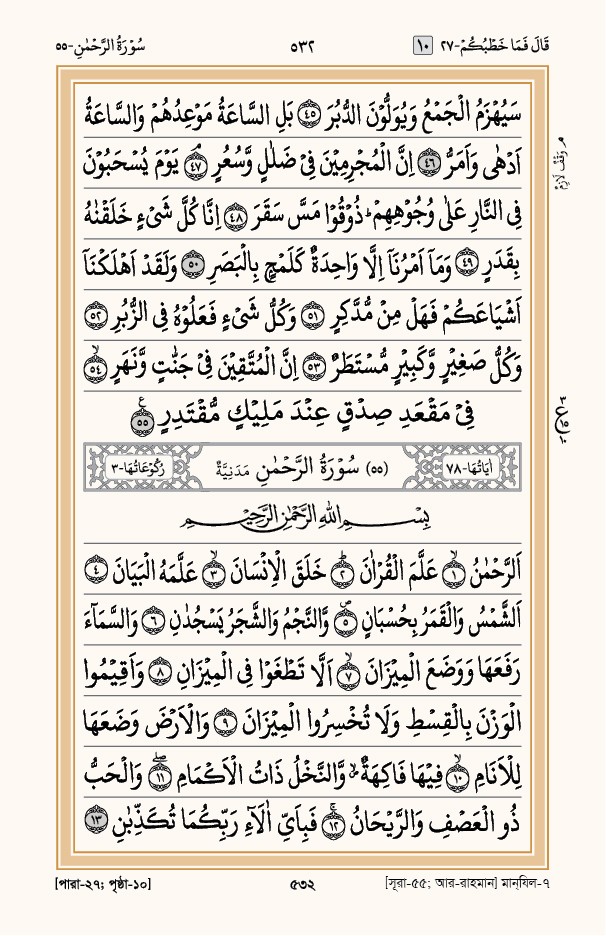 قَالَ فَمَا خَطْبُكُمْ-٢٧ ١٠ ٥٣٢ سُوْرَةُ الرَّحْمٰنِ-٥٥
سَيُهْزَمُ الْجَمْعُ وَيُوَلُّوْنَ الدُّبُرَ ۝٤٥ بَلِ السَّاعَةُ مَوْعِدُهُمْ وَالسَّاعَةُ
اَدْهٰى وَاَمَرُّ ۝٤٦ اِنَّ الْمُجْرِمِيْنَ فِيْ ضَلٰلٍ وَّسُعُرٍ ۝٤٧ۘ يَوْمَ يُسْحَبُوْنَ
م وَقْف لَازِمْ
فِى النَّارِ عَلٰى وُجُوْهِهِمْ ؕ ذُوْقُوْا مَسَّ سَقَرَ ۝٤٨ اِنَّا كُلَّ شَىْءٍ خَلَقْنٰهُ
بِقَدَرٍ ۝٤٩ وَمَاۤ اَمْرُنَاۤ اِلَّا وَاحِدَةٌ كَلَمْحٍۭ بِالْبَصَرِ ۝٥٠ وَلَقَدْ اَهْلَكْنَاۤ
اَشْيَاعَكُمْ فَهَلْ مِنْ مُّدَّكِرٍ ۝٥١ وَكُلُّ شَىْءٍ فَعَلُوْهُ فِى الزُّبُرِ ۝٥٢
وَكُلُّ صَغِيْرٍ وَّكَبِيْرٍ مُّسْتَطَرٌ ۝٥٣ اِنَّ الْمُتَّقِيْنَ فِيْ جَنّٰتٍ وَّنَهَرٍ ۝٥٤ۙ
فِيْ مَقْعَدِ صِدْقٍ عِنْدَ مَلِيْكٍ مُّقْتَدِرٍ ۝٥٥ۧ
اٰيَاتُهَا-٧٨ (٥٥) سُوْرَةُ الرَّحْمٰنِ مَدَنِيَّةٌ رُكُوْعَاتُهَا-٣
بِسْمِ اللهِ الرَّحْمٰنِ الرَّحِيْمِ
اَلرَّحْمٰنُ ۝١ۙ عَلَّمَ الْقُرْاٰنَ ۝٢ؕ خَلَقَ الْاِنْسَانَ ۝٣ۙ عَلَّمَهُ الْبَيَانَ ۝٤
اَلشَّمْسُ وَالْقَمَرُ بِحُسْبَانٍ ۝٥۪ وَّالنَّجْمُ وَالشَّجَرُ يَسْجُدٰنِ ۝٦ وَالسَّمَآءَ
رَفَعَهَا وَوَضَعَ الْمِيْزَانَ ۝٧ۙ اَلَّا تَطْغَوْا فِى الْمِيْزَانِ ۝٨ وَاَقِيْمُوا
الْوَزْنَ بِالْقِسْطِ وَلَا تُخْسِرُوا الْمِيْزَانَ ۝٩ وَالْاَرْضَ وَضَعَهَا
لِلْاَنَامِ ۝١٠ۙ فِيْهَا فَاكِهَةٌ ۪ۙ وَّالنَّخْلُ ذَاتُ الْاَكْمَامِ ۝١١ۖ وَالْحَبُّ
ذُو الْعَصْفِ وَالرَّيْحَانُ ۝١٢ۚ فَبِاَيِّ اٰلَآءِ رَبِّكُمَا تُكَذِّبٰنِ ۝١٣
[পারা-২৭; পৃষ্ঠা-১০] ৫৩২ [সূরা-৫৫; আর-রাহমান] মান্‌যিল-৭